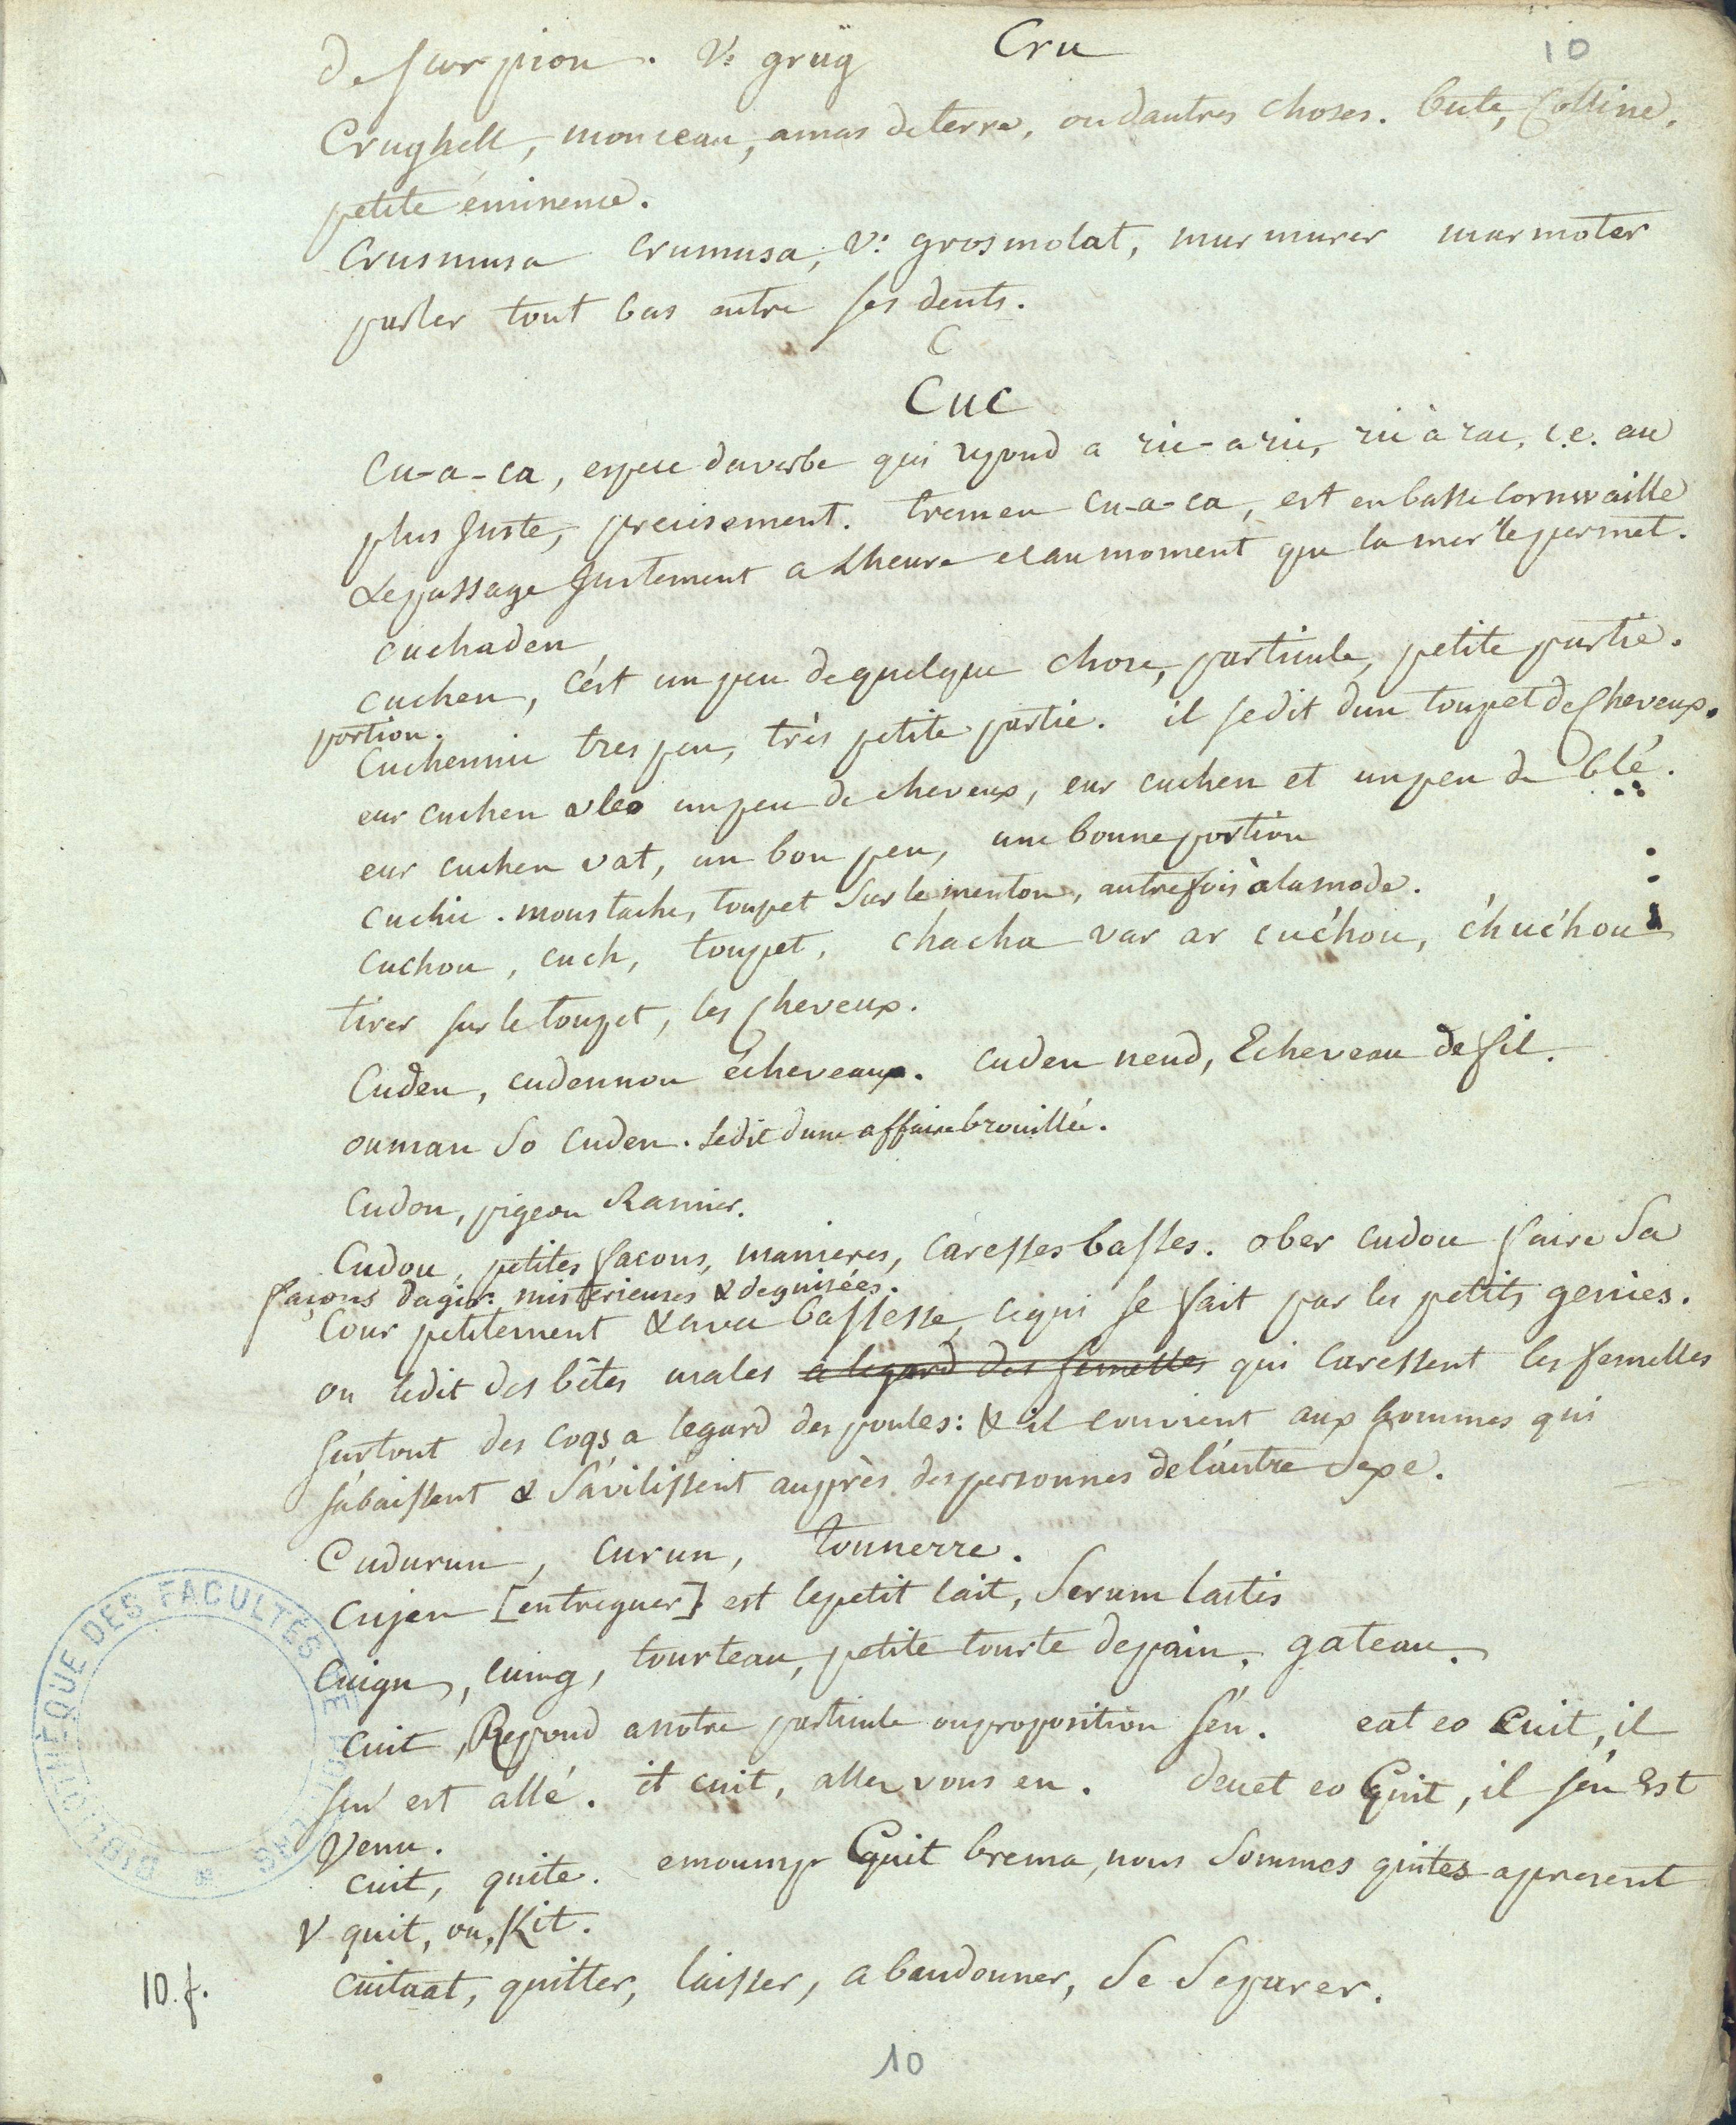 Cru 10
de scorpion. V: grüg
Crughell, monceau, amas de terre, ou dautres choses. bute, Colline,
petite éminence.
Crusmusa crumusa, V: grosmolat, murmurer marmoter
parler tout bas entre ses dents.
C
Cuc
Cu-a-ca, espece daverbe qui repond a ric-a ric, ric à rac, c.e. au
plus Juste, precisement. tremen cu-a-ca, est en basse cornwaille
Le passage Justement a Lheure et au moment que la mer le permet.
cuchaden,
cuchen, c'est un peu de quelque chose, particule, petite partie.
portion.
Cuchennic tres peu, très petite partie. il se dit dun toupet de Cheveux.
eur cuchen vleo un peu de cheveux, eur cuchen et un peu de blé.
eur cuchen vat, un bon peu, une bonne portion
cuchic. moustache, toupet sur le menton, autrefois à la mode.
cuchou, cuch, toupet, chacha var ar cuc'hou, c'huc'hou
tirer sur le toupet, les Cheveux.
Cuden, cudennou écheveaux. cuden neud, Echeveau de fil.
ouman so cuden. Se dit dune affaire brouillée.
Cudon, pigeon Ramier.
Cudou, petites facons, manieres, caresses basses. ober cudou faire Sa
façons dagir: misterieuses & deguisées.
Cour petitement & avec bassesse, ce qui se fait par les petits genies.
on le dit des bêtes males a legard des femelles qui caressent les femelles
surtout des coqs a legard des poules: & il convient aux hommes qui
s'abaissent & S'avilissent auprès des personnes de l'autre Sexe.
Cudurun, curun, tonnerre.
Cujen [en treguer] est le petit lait, Serum lactis
Cuign, cuing, tourteau, petite tourte de pain, gateau.
cuit, Repond a notre particule ou proposition s'en. eat eo Cuit, il
sen est allé. it cuit, allez vous en. deuet eo Cuit, il s'en Est
Venu.
cuit, quite. emoump Cuit brema, nous Sommes quites apresent
V quit, ou, Kit.
cuitaat, quitter, laisser, abandonner, Se Separer.
10. f.
10
BIBLIOTHÈQUE DES FACULTÉS DE